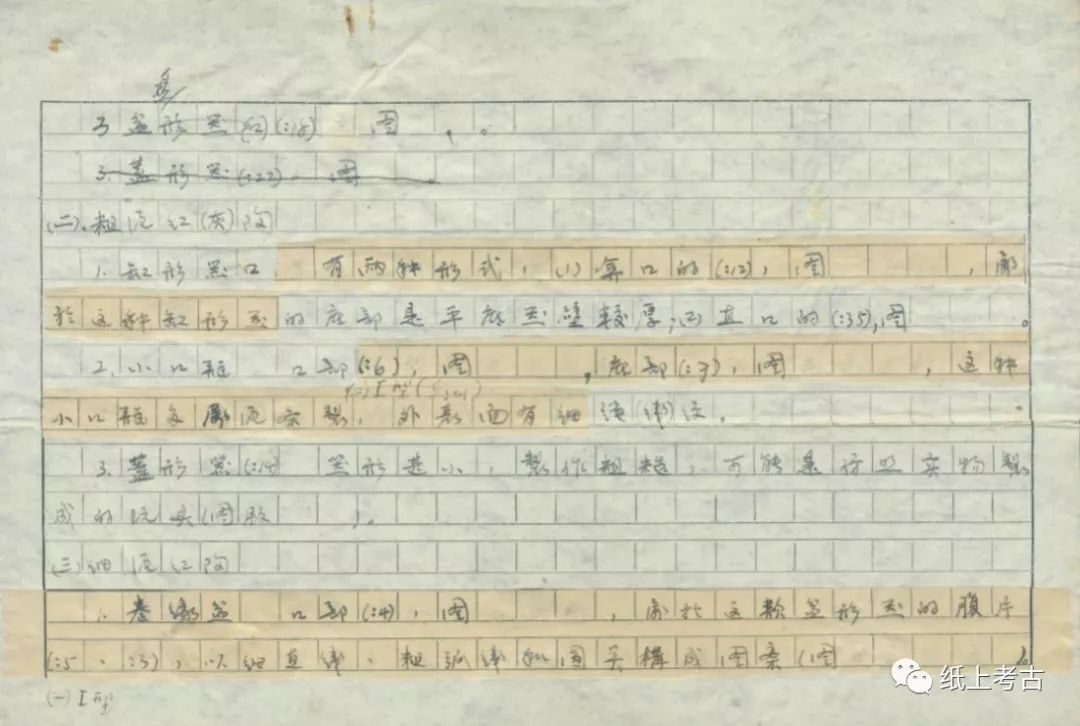 盖
3 盆形器(红)(:18) 图 , 。
3. 盖形器(:22). 图 。
(二)、粗泥红(灰)陶
1. 缸形器口 有两种形式,(1)敛口的(:12),图 ,属
於这种缸形器的底部是平底器壁较厚;(2)直口的(:35),图 。
2. 小口瓶 口部(:6),图 ,底部(:7),图 ,这种
(二)I型
小口瓶多属泥条製,外表面有细绳纹。
3. 蓋形器(:14) 器形甚小,製作粗糙,可能是仿照实物製
成的玩具(图版 )。
(三)细泥红陶
1. 卷缘盆 口部(:4),图 ,属於这类盆形器的腹片
(:5、:3),以细直线、粗弧线和圆点構成图案(图 )。
(一)I型
纸上考古